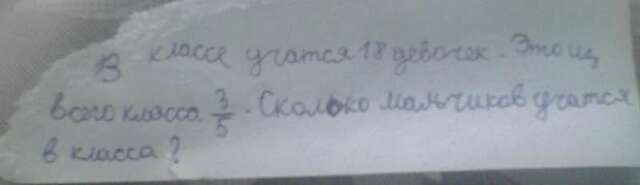 В классе учатся 18 девочек. Это
всего класса 3/5. Сколько мальчиков учатся
в класса?